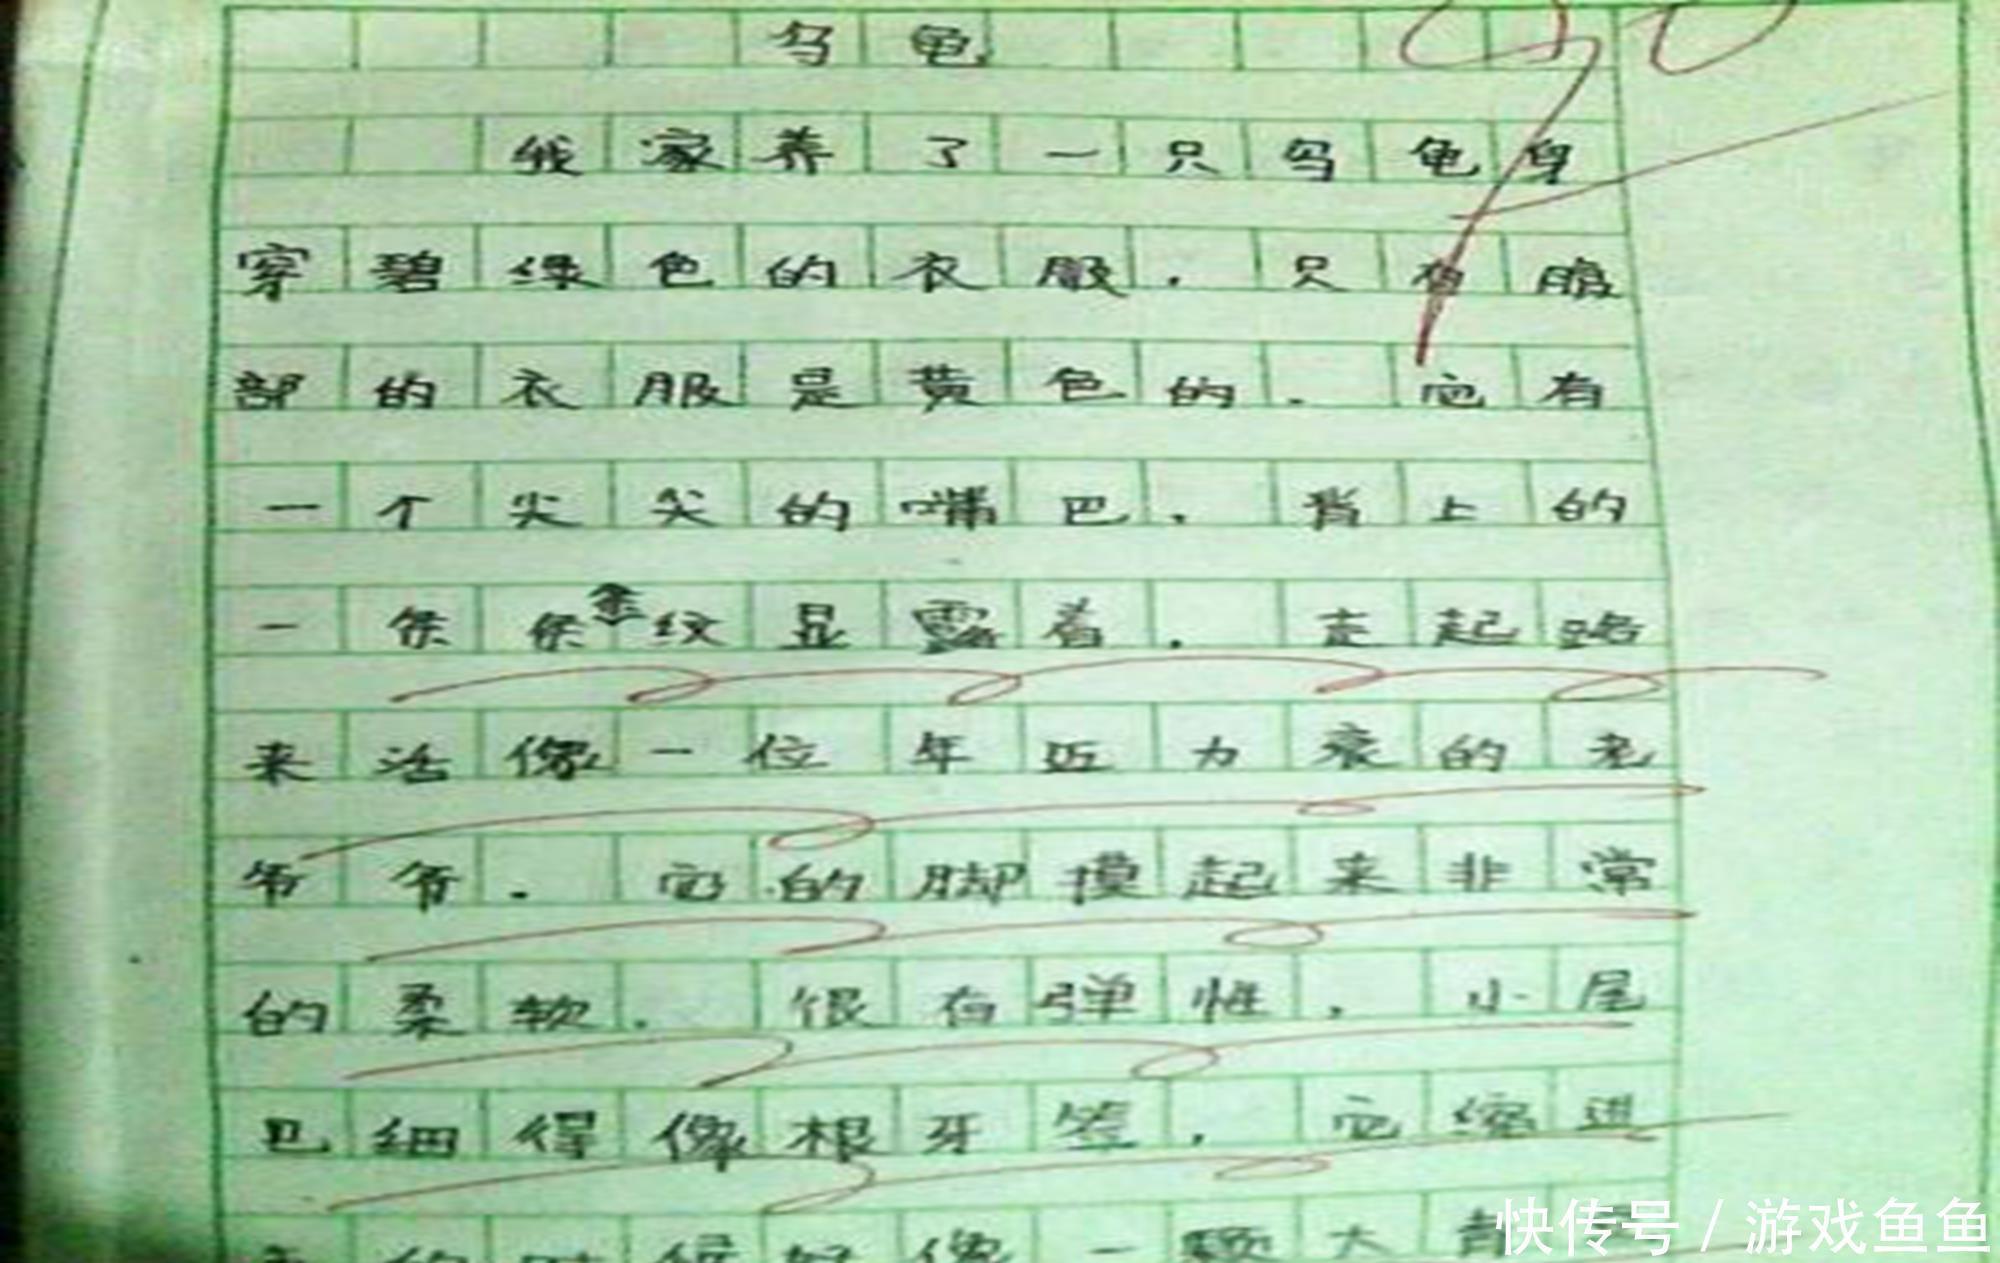 乌龟
我家养了一只乌龟身
穿碧绿色的衣服，只有腹
部的衣服是黄色的．它有
一个尖尖的嘴巴，背上的
一条条纹显露着．走起路
来活像一位年迈力衰的老
爷爷．它的脚摸起来非常
的柔软．很有弹性，小尾
巴细得像根牙签，它缩进
的时候好像一颗大青
快传号/游戏鱼鱼